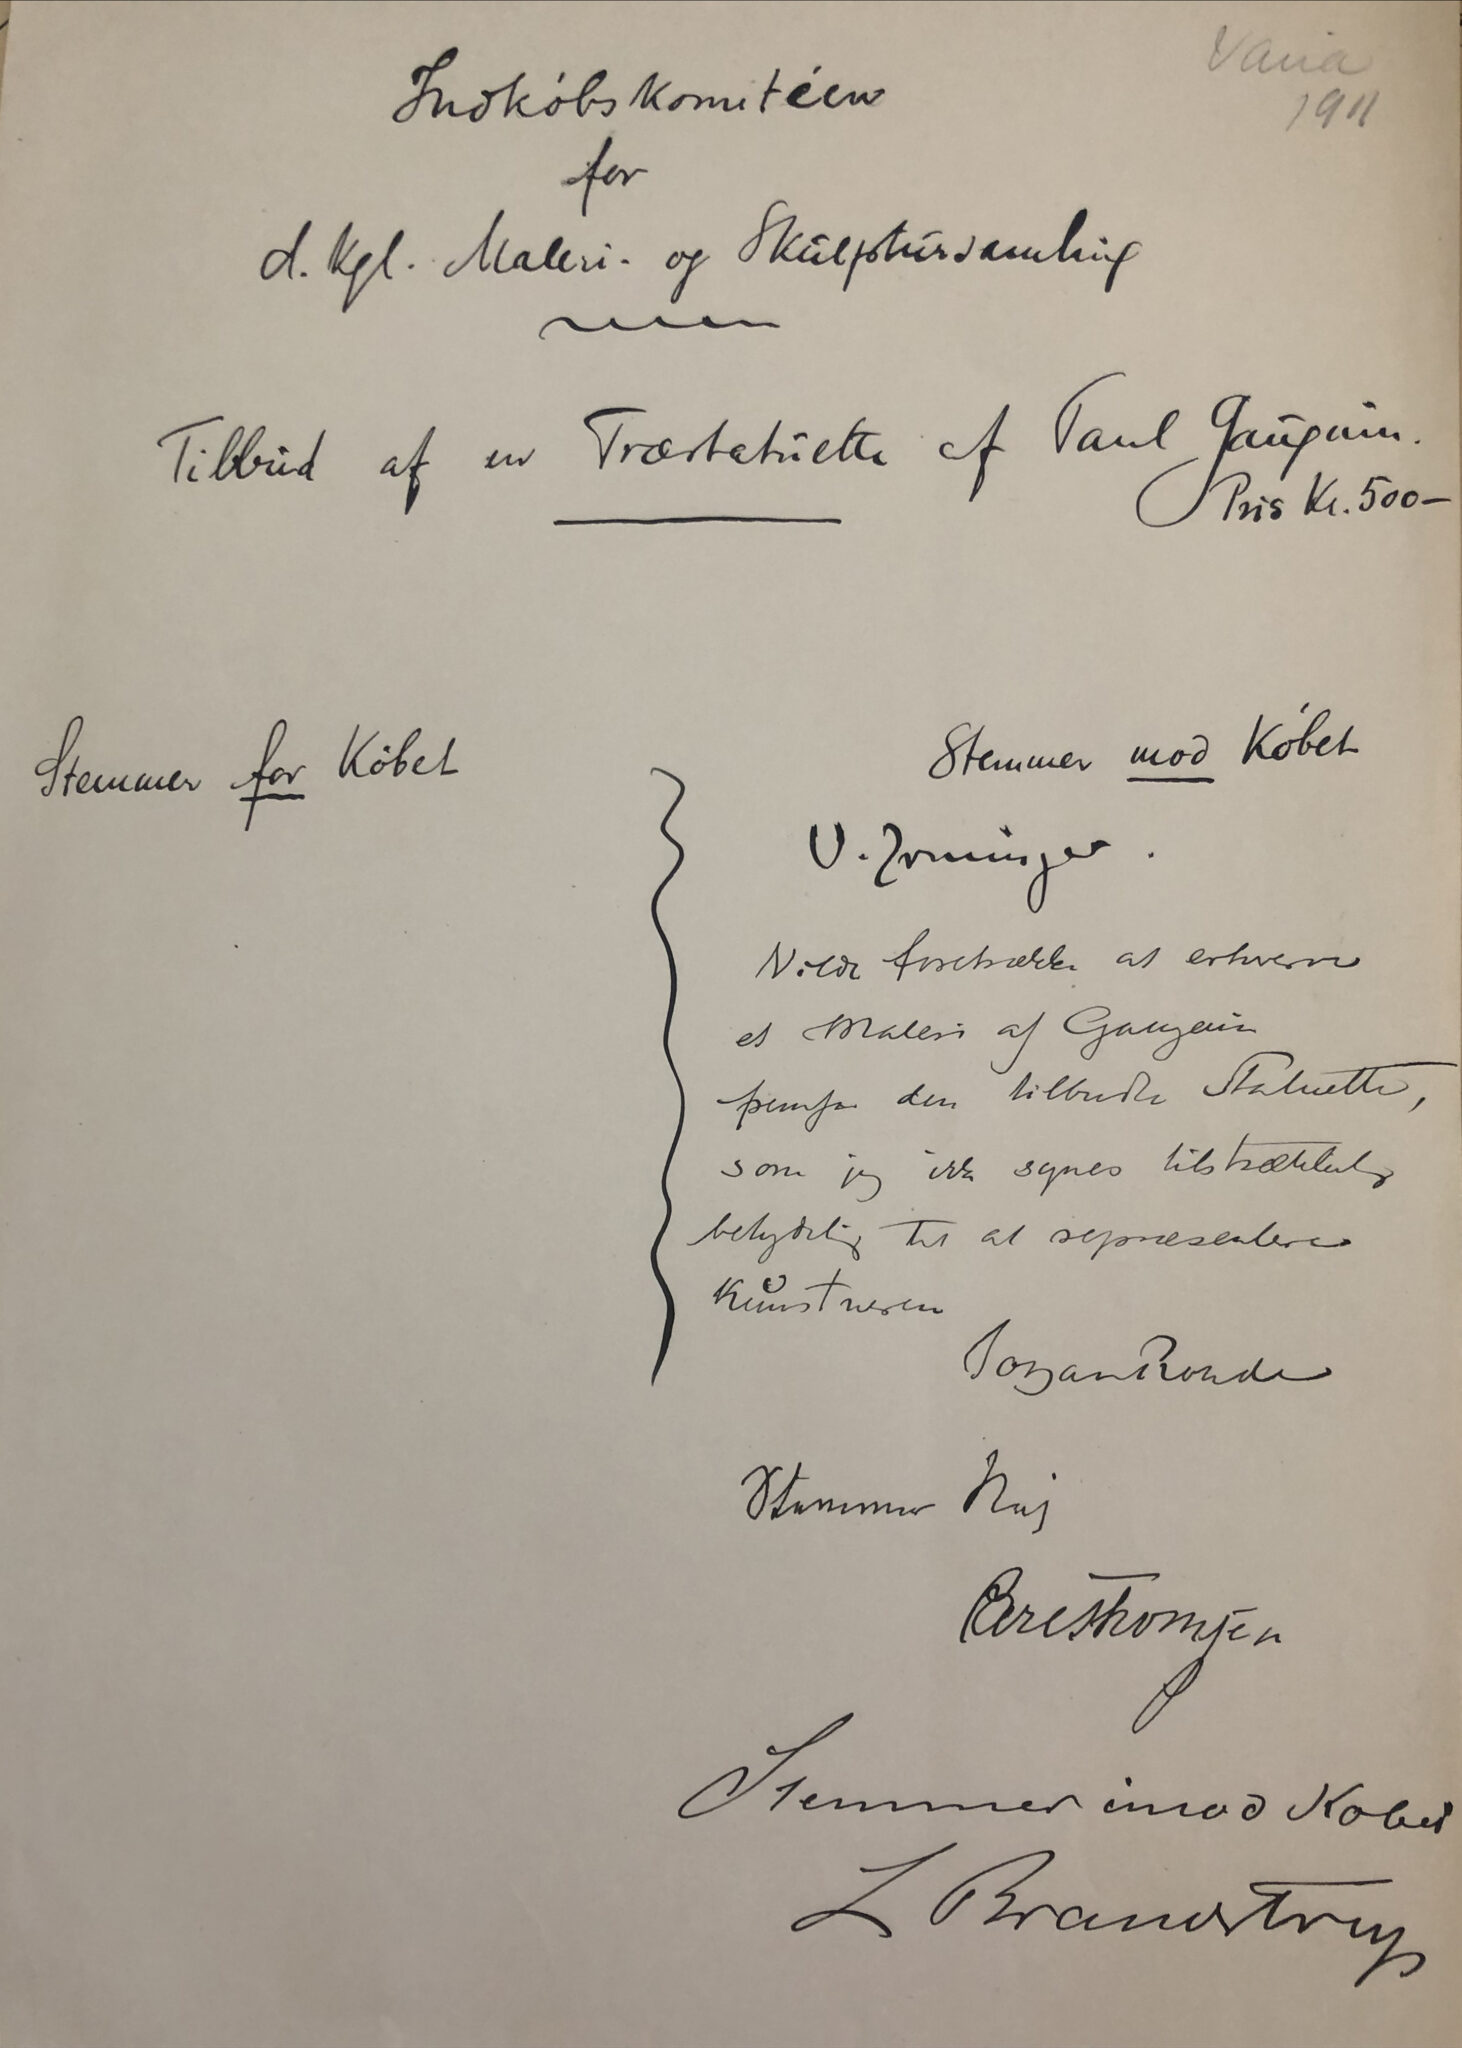 Varia
1911
Indkøbskomitéen
for
d. Kgl. Maleri- og Skulptursamling
Tilbud af en Træstatuette af Paul Gauguin.
Pris Kr. 500-
Stemmer for Købet
Stemmer mod Købet
V. Irminger.
Vilde foretrække at erhverve
et Maleri af Gauguin
fremfor den tilbudte Statuette,
som jeg ikke synes tilstrækkelig
betydelig til at repræsentere
Kunstneren
Johan Rohde
Stemmer Nej
Carl Thomsen
Stemmer imod Købet
L Brandstrup